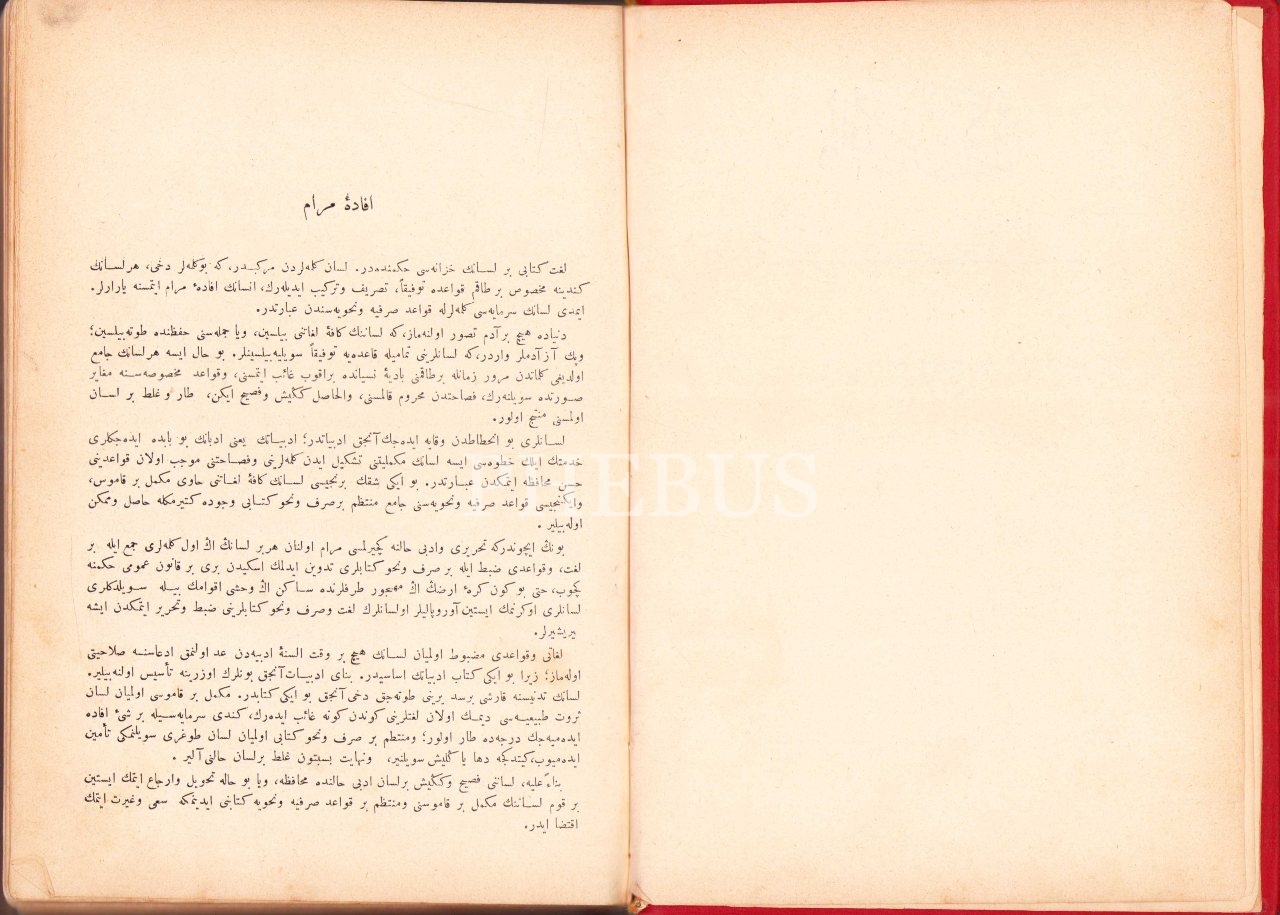 افادهٔ مرام
لغت کتابی بر لسانك خزانه‌سی حکمنده‌در. لسان کله‌لردن مرکبدر، که بوکله‌لر دخی، هر لسانك
کندینه مخصوص بر طاقم قواعده توفیقاً، تصریف وترکیب ایدیله‌رك، انسانك افادهٔ مرام ایتمسنه یارارلر.
ایمدی لسانك سرمایه‌سی کله‌لرله قواعد صرفیه ونحویه‌سندن عبارتدر.
دنیاده هیچ بر آدم تصور اولنه‌ماز، که لساننك کافهٔ لغاتنی بیلسین، ویا جمله‌سنی حفظنده طوته‌بیلسین؛
وپك آز آدملر واردر، که لسانلرینی تمامیله قاعده‌یه توفیقاً سویلیه‌بیلسینلر. بو حال ایسه هر لسانك جامع
اولدیغی کلماتدن مرور زمانله بر طاقمنی بادیهٔ نسیانده براقوب غائب ایتمسنی، وقواعد مخصوصه‌سنه مغایر
صورتده سویلنه‌رك، فصاحتدن محروم قالمسنی، والحاصل کڭیش وفصیح ایکن، طار و غلط بر لسان
اولمسنی منتج اولور.
لسانلری بو انحطاطدن وقایه ایده‌جك آنجق ادبیاتدر؛ ادبیاتك یعنی ادبانك بو بابده ایده‌جکلری
خدمتك ایلك خطوه‌سی ایسه لسانك مکملیتنی تشکیل ایدن کله‌لرینی وفصاحتنی موجب اولان قواعدینی
حسن محافظه ایتمکدن عبارتدر. بو ایکی شقك برنجیسی لسانك کافهٔ لغاتنی حاوی مکمل بر قاموس،
وایکنجیسی قواعد صرفیه ونحویه‌سنی جامع منتظم بر صرف ونحو کتابی وجوده کتیرمکله حاصل وممکن
اوله‌بیلیر.
بونڭ ایچوندرکه تحریری وادبی حالنه کچیرلمسی مرام اولنان هر بر لسانڭ اڭ اول کله‌لری جمع ایله بر
لغت، وقواعدی ضبط ایله بر صرف ونحو کتابلری تدوین ایدلمك اسکیدن بری بر قانون عمومی حکمنه
کچوب، حتی بو کون کرهٔ ارضڭ اڭ مهجور طرفلرنده ساکن اڭ وحشی اقوامك بیله سویلدکلری
لسانلری اوکرنمك ایستین آوروپالیلر اولسانلرك لغت وصرف ونحو کتابلرینی ضبط وتحریر ایتمکدن ایشه
یریشیرلر.
لغاتی وقواعدی مضبوط اولمیان لسانك هیچ بر وقت السنهٔ ادبیه‌دن عد اولنمق ادعاسنه صلاحیتی
اوله‌ماز؛ زیرا بو ایکی کتاب ادبیاتك اساسیدر. بنای ادبیات آنجق بونلرك اوزرینه تأسیس اولنه‌بیلیر.
لسانك تدنیسنه قارشی برسد یرینی طوته‌جق دخی آنجق بو ایکی کتابدر. مکمل بر قاموسی اولمیان لسان
ثروت طبیعیه‌سی دیمك اولان لغتلرینی کوندن کونه غائب ایده‌رك، کندی سرمایه‌سیله بر شیٔ افاده
ایده‌میه‌جك درجه‌ده طار اولور؛ ومنتظم بر صرف ونحو کتابی اولمیان لسان طوغری سویلنمکی تأمین
ایده‌میوب، کیتدکجه دها یاڭلیش سویلنیر، ونهایت بسبتون غلط بر لسان حالنی آلیر.
بناءً علیه، لساننی فصیح وکڭیش بر لسان ادبی حالنده محافظه، ویا بو حاله تحویل وارجاع ایتمك ایستین
بر قوم لساننك مکمل بر قاموسنی ومنتظم بر قواعد صرفیه ونحویه کتابنی ایدینمکه سعی وغیرت ایتمك
اقتضا ایدر.